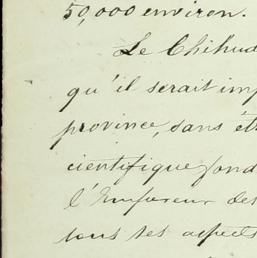 50,000 environ.
Le Chihua
qu'il serait imp
province, sans êt
scientifique fond
l'Empereur des
tous ses aspects